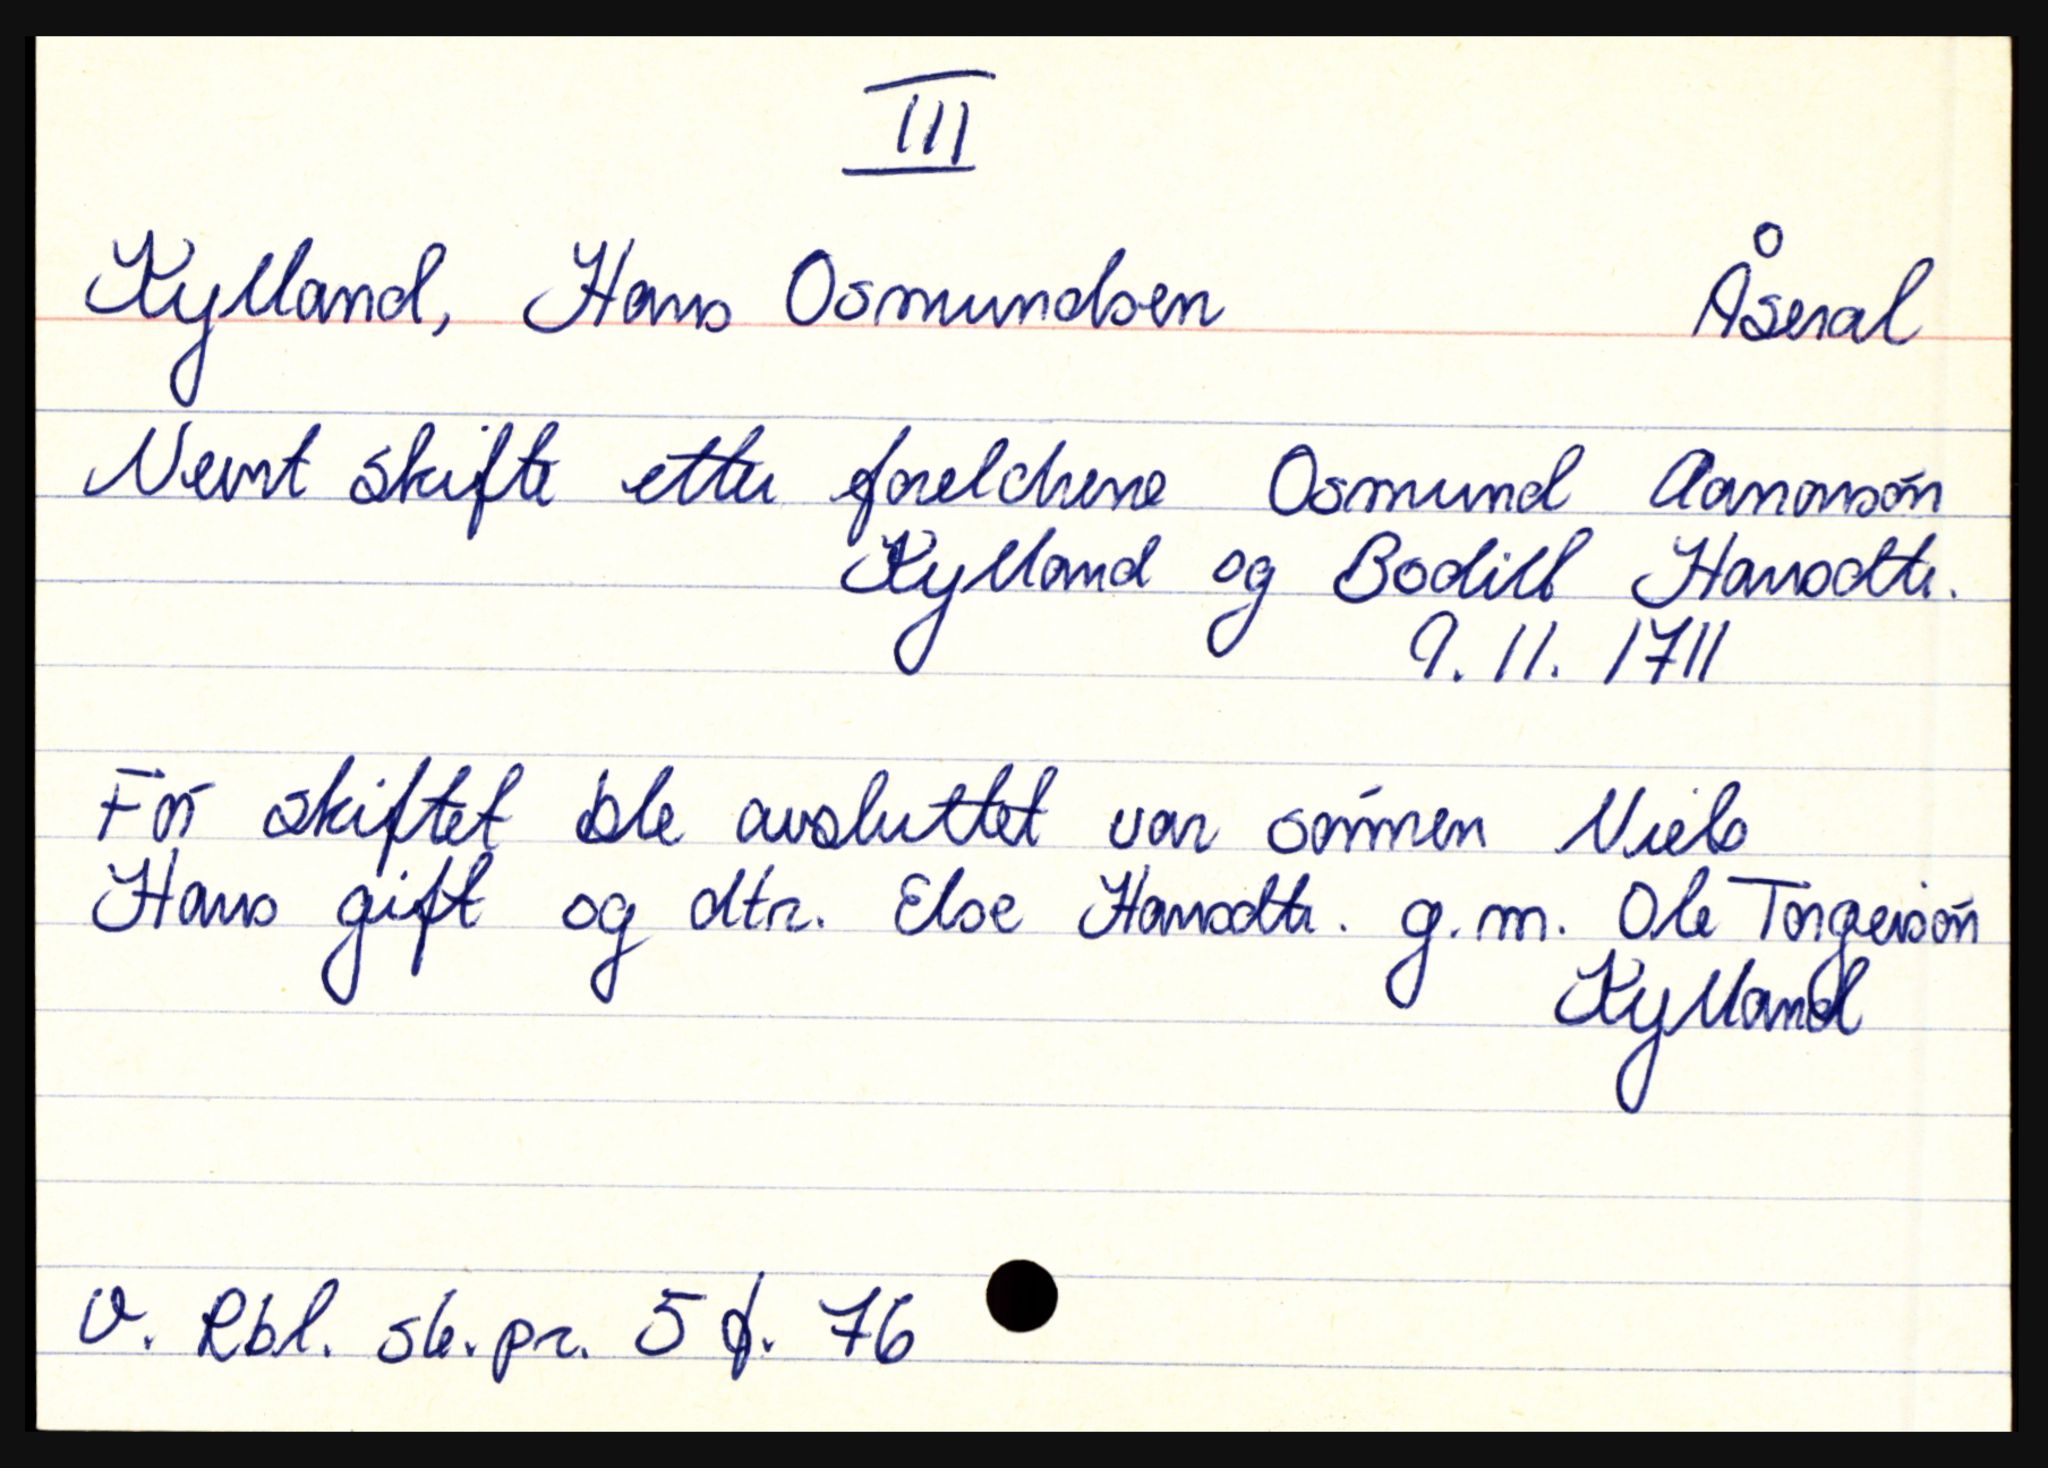 III
Kylland, Hans Osmundsen Åseral
Nevnt skifte etter foreldrene Osmund Aanonsøn
Kylland og Bodill Hansdtr.
9. 11. 1711
Før skiftet ble avsluttet var sønnen Niels
Hans gift og dtr. Else Hansdtr. g.m. Ole Torgersøn
Kylland
V. Rbl. sk.pr. 5 f. 76